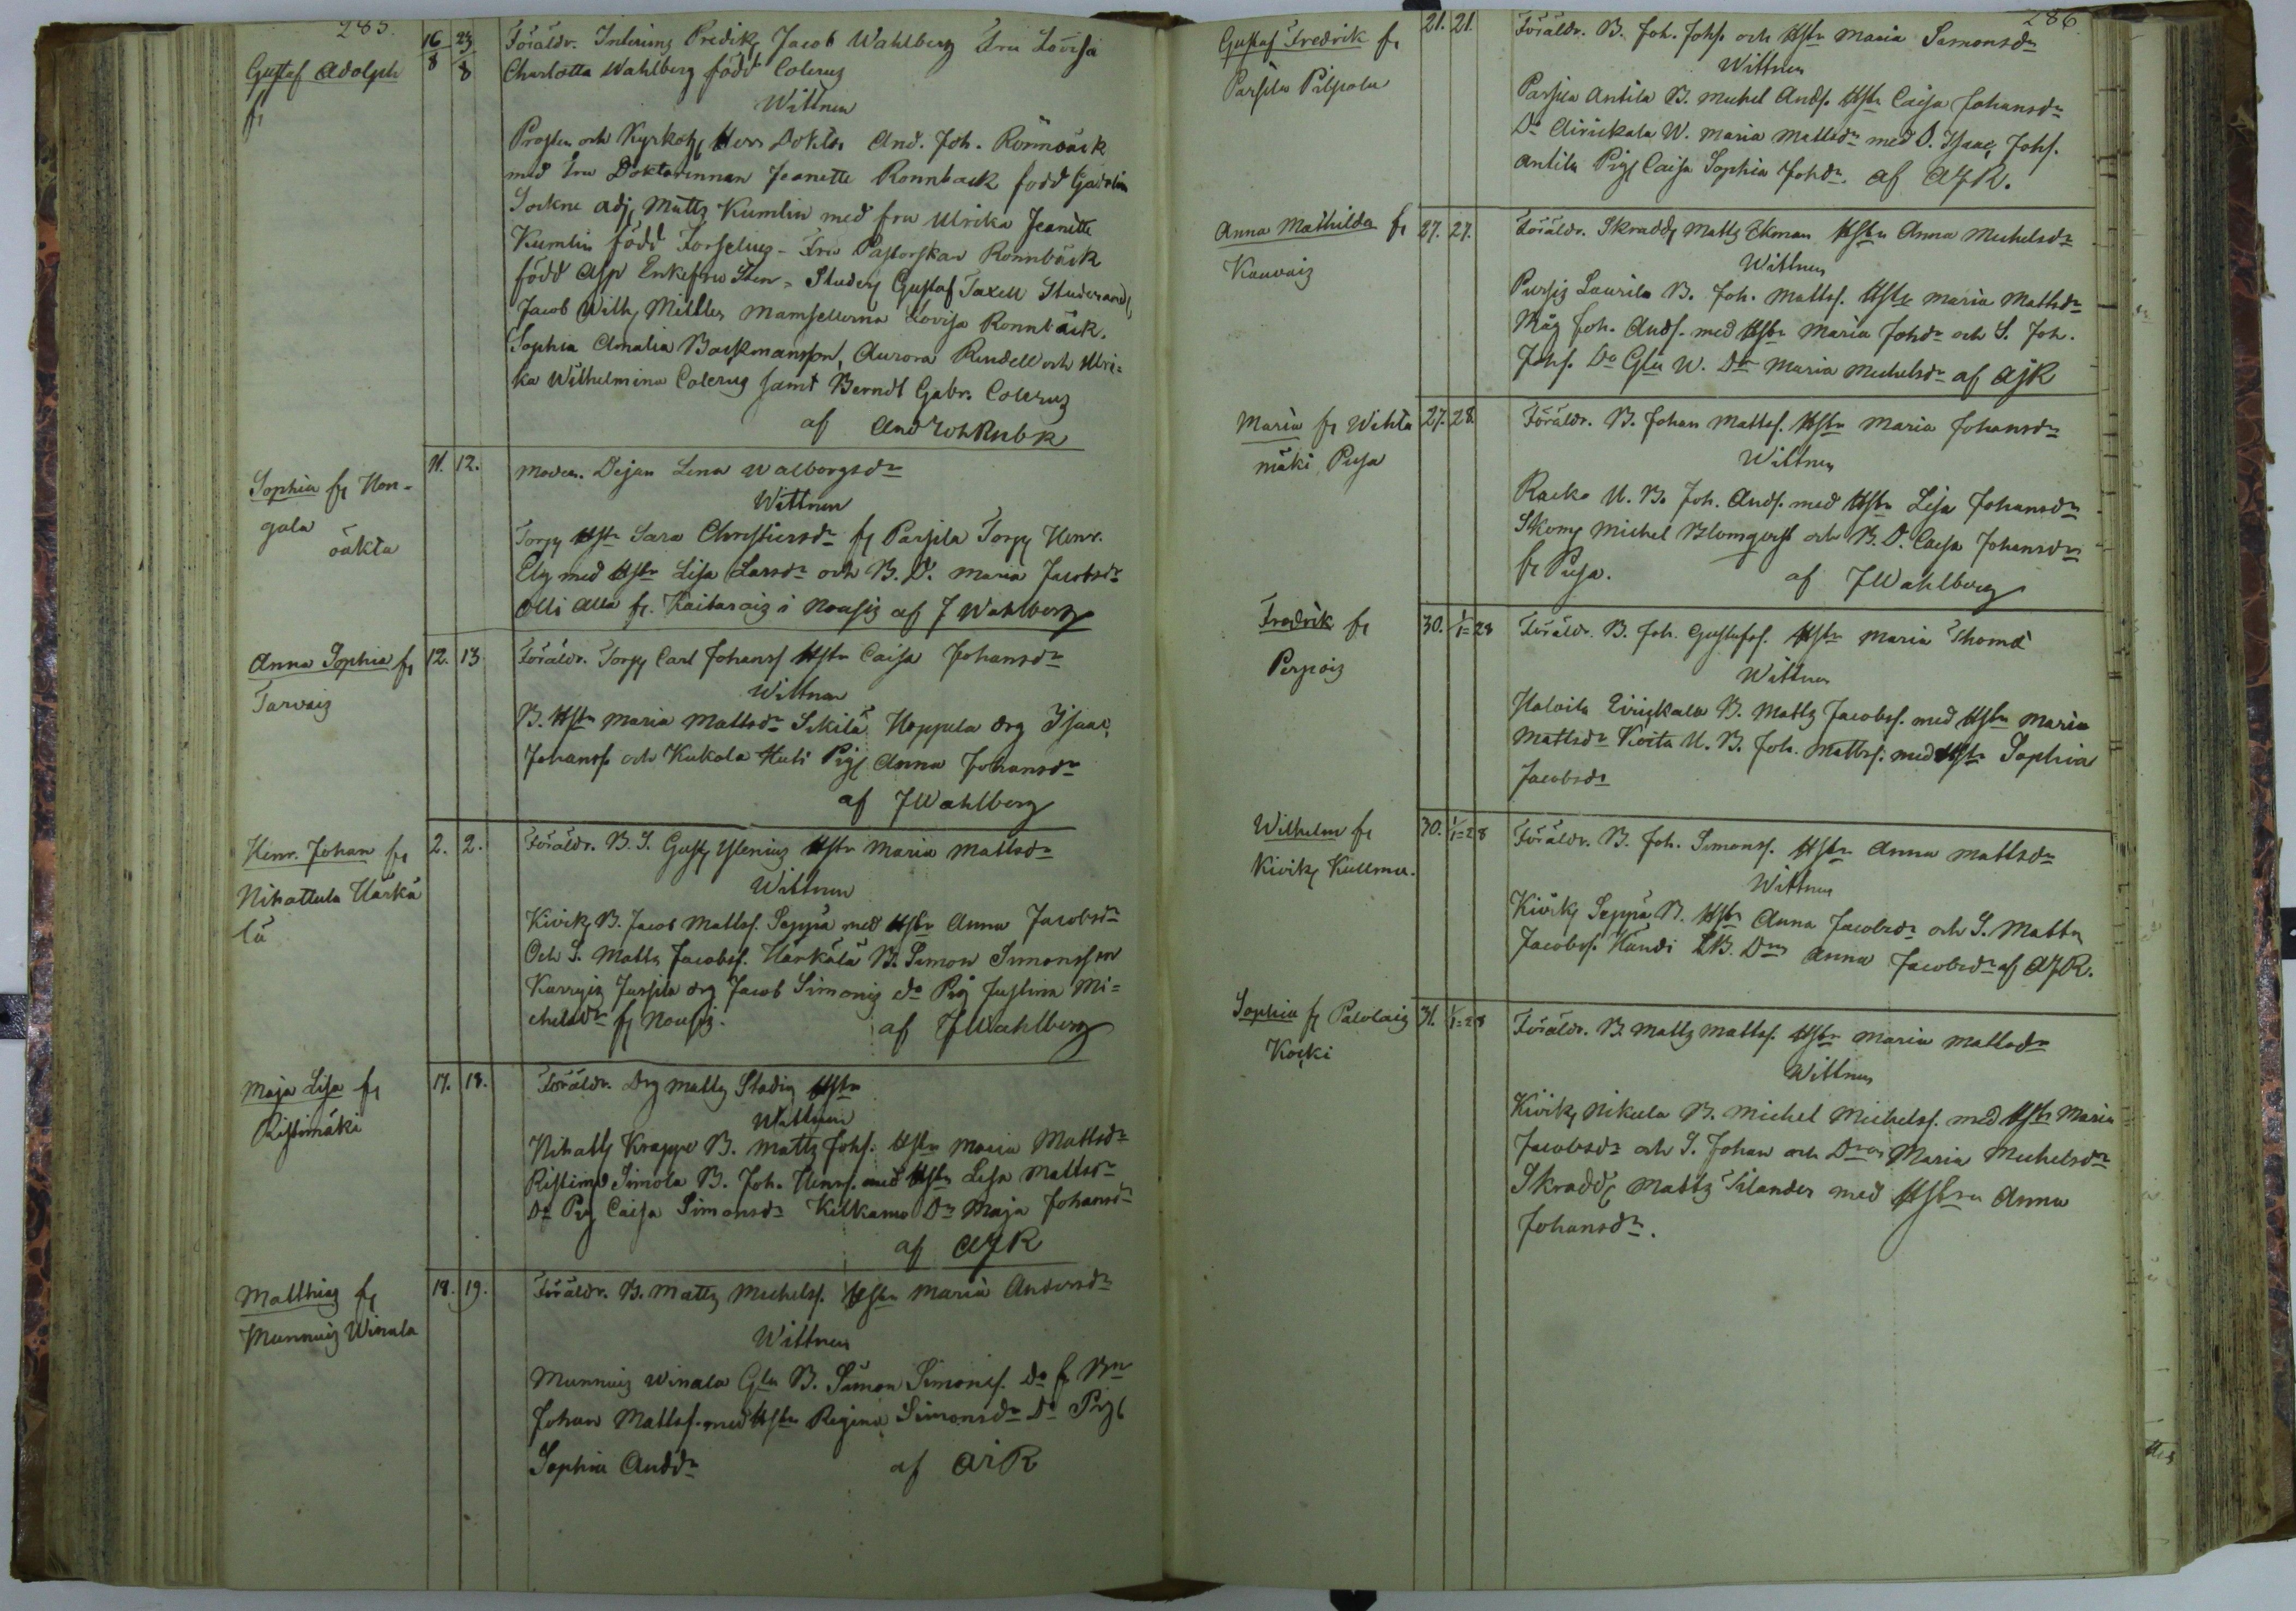 285.
Gustaf Adolph
fr
16/8 23/8
Föräldr. Interims Predik. Jacob Wahlberg Fru Lovisa
Charlotta Wahlberg född Colerus
Wittnen
Prosten och Kyrkoh. Herr Doktor And. Joh. Rönnbäck
med Fru Doktorinnan Jeanette Rönnback född Gadolin
Sockne adj. Matts Kumlin med fru Ulrika Jeanette
Kumlin född Forselius - Fru Pastorskan Rönnbäck
född Enkefru Sten - Studer. Gustaf Taxell Studerand.
Jacob Wilh. Mamsellerna Lovisa Ronnbäck.
Sophia Amalia Backmansson, Aurora och Ulri=
ka Wilhelmina Colerus samt Berndt Gabr. Colerus
af And Joh Rnbk
Sophia fr Hon-
gola
11. 12.
Modren. Dejan Lena Walborgsdr
Wittnen
Torp. Hstr Sara Christiersdr fr Parsila Torp. Henr.
Elg med Hstr Lisa Larsdr och B. D. Maria Jacobsdr
Olli Alla fr. i Nousis af J Wahlberg
Anna Sophia fr
Tarvais
12. 13
Föräldr. Torp. Carl Johanss Hstr Caisa Johansdr
Wittnen
B. Hstr Maria Mattsdr Sikilä Heppula drg Isaac
Johanss. och Kukola Huti Pig. Anna Johansdr
af J Wahlberg
Henr. Johan fr
Nihattula Härkä
lä
2. 2.
Föräldr. B. S. Gust. Ylenius Hstr Maria Mattsdr
Wittnen
Kivik. B. Jacob Mattss. Seppä med Hstr Anna Jacobsdr
Och S. Matts Jacobss. Härkälä B. Simon Simonsson
Jussila drg Jacob Simons do Pig Justina Mi=
chelsdr fr Nousis. af J Wahlberg
Maja Lisa fr
Ristimäki
17. 18.
Föräldr. Drg Matts Stadig Hstr
Wittnen
Nihatt. Krappe B. Matts Johs. Hstr Maria Mattsdr
Ristim. Simola B. Joh. Henrs. med Hstr Lisa Mattsdr
Do Pig Caisa Simonsdr Kilkamo Dr Maja Johansdr
af AJR
Matthias fr
Munnuis Winala
18. 19.
Föräldr. B. Matts Michelss. Hstr Maria Andersdr
Wittnen
Munnuis Winala Gla B. Simon Simonss. Do f. Bn
Johan Mattss. med Hstr Regina Simonsdr Do Pig.
Sophia Andsdr af AJR
286
Gustaf Fredrik fr
Parsila Pilpola
21. 21.
Föräldr. B. Joh. Johs. och Hstr Maria Simonsdr
Wittnen
Parsila Antila B. Michel Ands. Hstr Caisa Johansdr
Do Airickala W. Maria Mattsdr med D. Isaac Johs.
Antila Pig. Caisa Sophia Johdr. af AJR.
Anna Mathilda fr
27. 27.
Föräldr. Skradd. Matts Ekman Hstr Anna Michelsdr
Wittnen
Laurila B. Joh. Mattss. Hstr Maria Mattsdr
Måg Joh. Ands. med Hstr Maria Johdr och S. Joh.
Johs. Do Gla W. Dr Maria Michelsdr af AJR
Maria fr Wihta
mäki Pusa
27. 28
Föräldr. B. Johan Mattss. Hstr Maria Johansdr
Wittnen
Racko U. B. Joh. Ands. med Hstr Lisa Johansdr
Skom. Michel Blomqvist och B. D. Caisa Johansdr
fr Pusa. af J Wahlberg
Fredrik fr
30. 1/1=28
Föräldr. B. Joh. Gustafss. Hstr Maria Thomä
Wittnen
Eirickala B. Matts Jacobss. med Hstr Maria
Mattsdr Koita U. B. Joh. Mattss. med Hstr Sophia
Jacobsdr
Wilhelm fr
Kivik. Kullma.
30. 1/1=28
Föräldr. B. Joh. Simonss. Hstr Anna Mattsdr
Wittnen
Kivik. Seppä B. Hstr Anna Jacobsdr och S. Matts
Jacobss. B. Drn Anna Jacobsdr af AJR.
Sophia fr Palolais
Kocki
31. 1/1=28
Föräldr. B. Matts Mattss. Hstr Maria Mattsdr
Wittnen
Kivik. Nikula B. Michel Michelss. med Hstr Maria
Jacobsdr och S. Johan och Dr Maria Michelsdr
Skradd. Matts Silander med Hstru Anna
Johansdr.